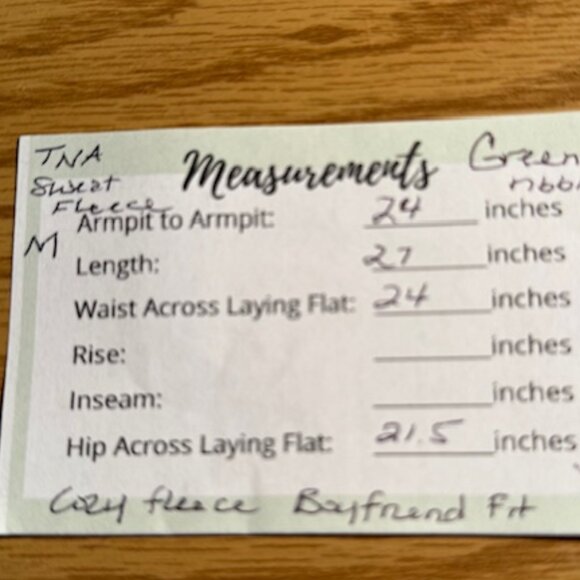 TNA
Sweat
Fleece
M
Measurements
Green
Armpit to Armpit: 24 inches
Length: 27 inches
Waist Across Laying Flat: 24 inches
Rise: inches
Inseam: inches
Hip Across Laying Flat: 21.5 inches
Cozy fleece Boyfriend Fit